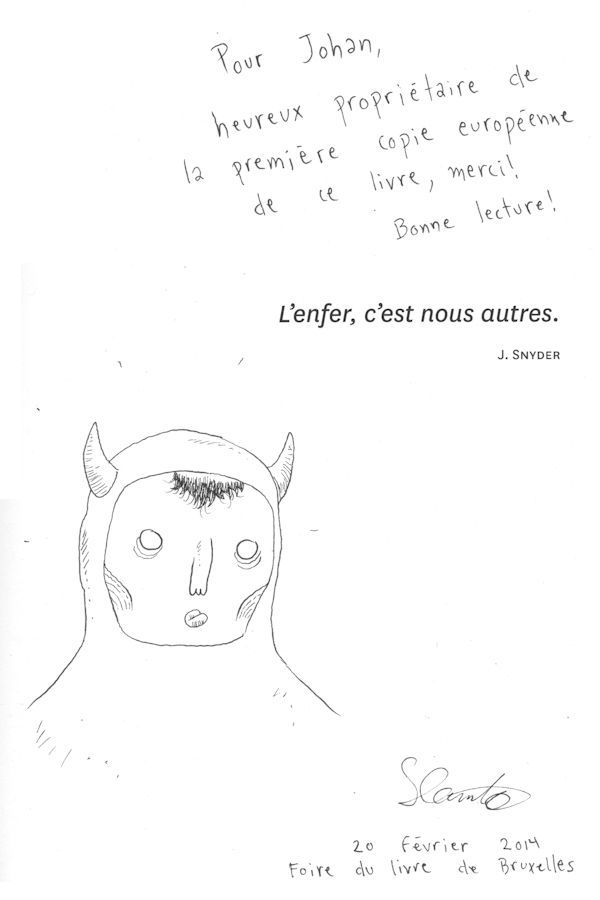 Pour Johan,
heureux propriétaire de
la première copie européenne
de ce livre, merci!
Bonne lecture!
L'enfer, c'est nous autres.
J. SNYDER
20 février 2014
Foire du livre de Bruxelles